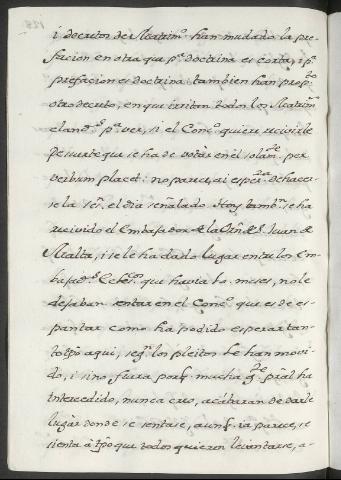 i decretos de Matrim.º han mudado la pre-
facion en otra que p.ª doctrina es corta, i p.ª
prefacion es doctrina: tambien han prop.to
otro decreto, en que irritan todos los Matrim.
cland.os p.ª ver, si el Conc.º quiere recivirle
De suerte que se ha de votar en el solam.te per
verbum placet: no parece, ai esper.za de hacer-
se la Ses.n el dia señalado. Hoy tamb.n se ha
recivido el Embaxador de la Orn de S. Juan de
Malta, i se le ha dado lugar entre los Em-
baxad.s Ecles.cos que havia 60. meses, no le
dejaban sentar en el Conc.º que es de es-
pantar como ha podido esperar tan-
to tpo aqui, seg.n los pleitos le han movi-
do, i si no fuera porq. mucha g.te pral ha
intercedido, nunca creo, acabaran de darle
lugar donde se sentase, aunq. ia parece, se
sienta à tpo que todos quieren levantarse, a-